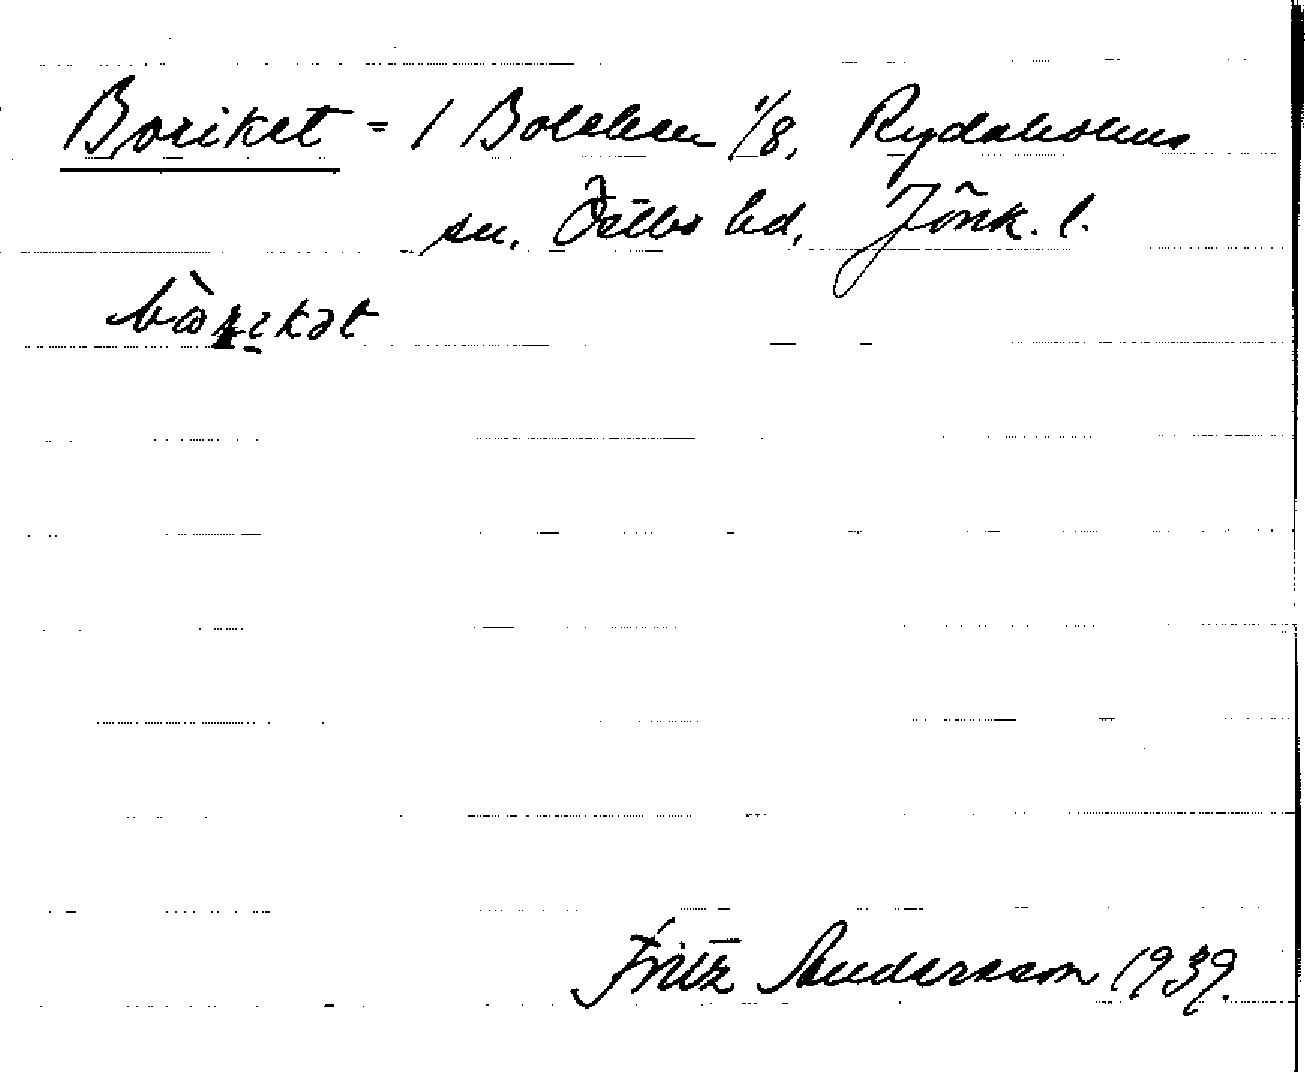 Boriket = / Bolskan 1/8, Rydaholms
sn. Östbo hd, Jönk. l.
Fritz Andersson 1939.